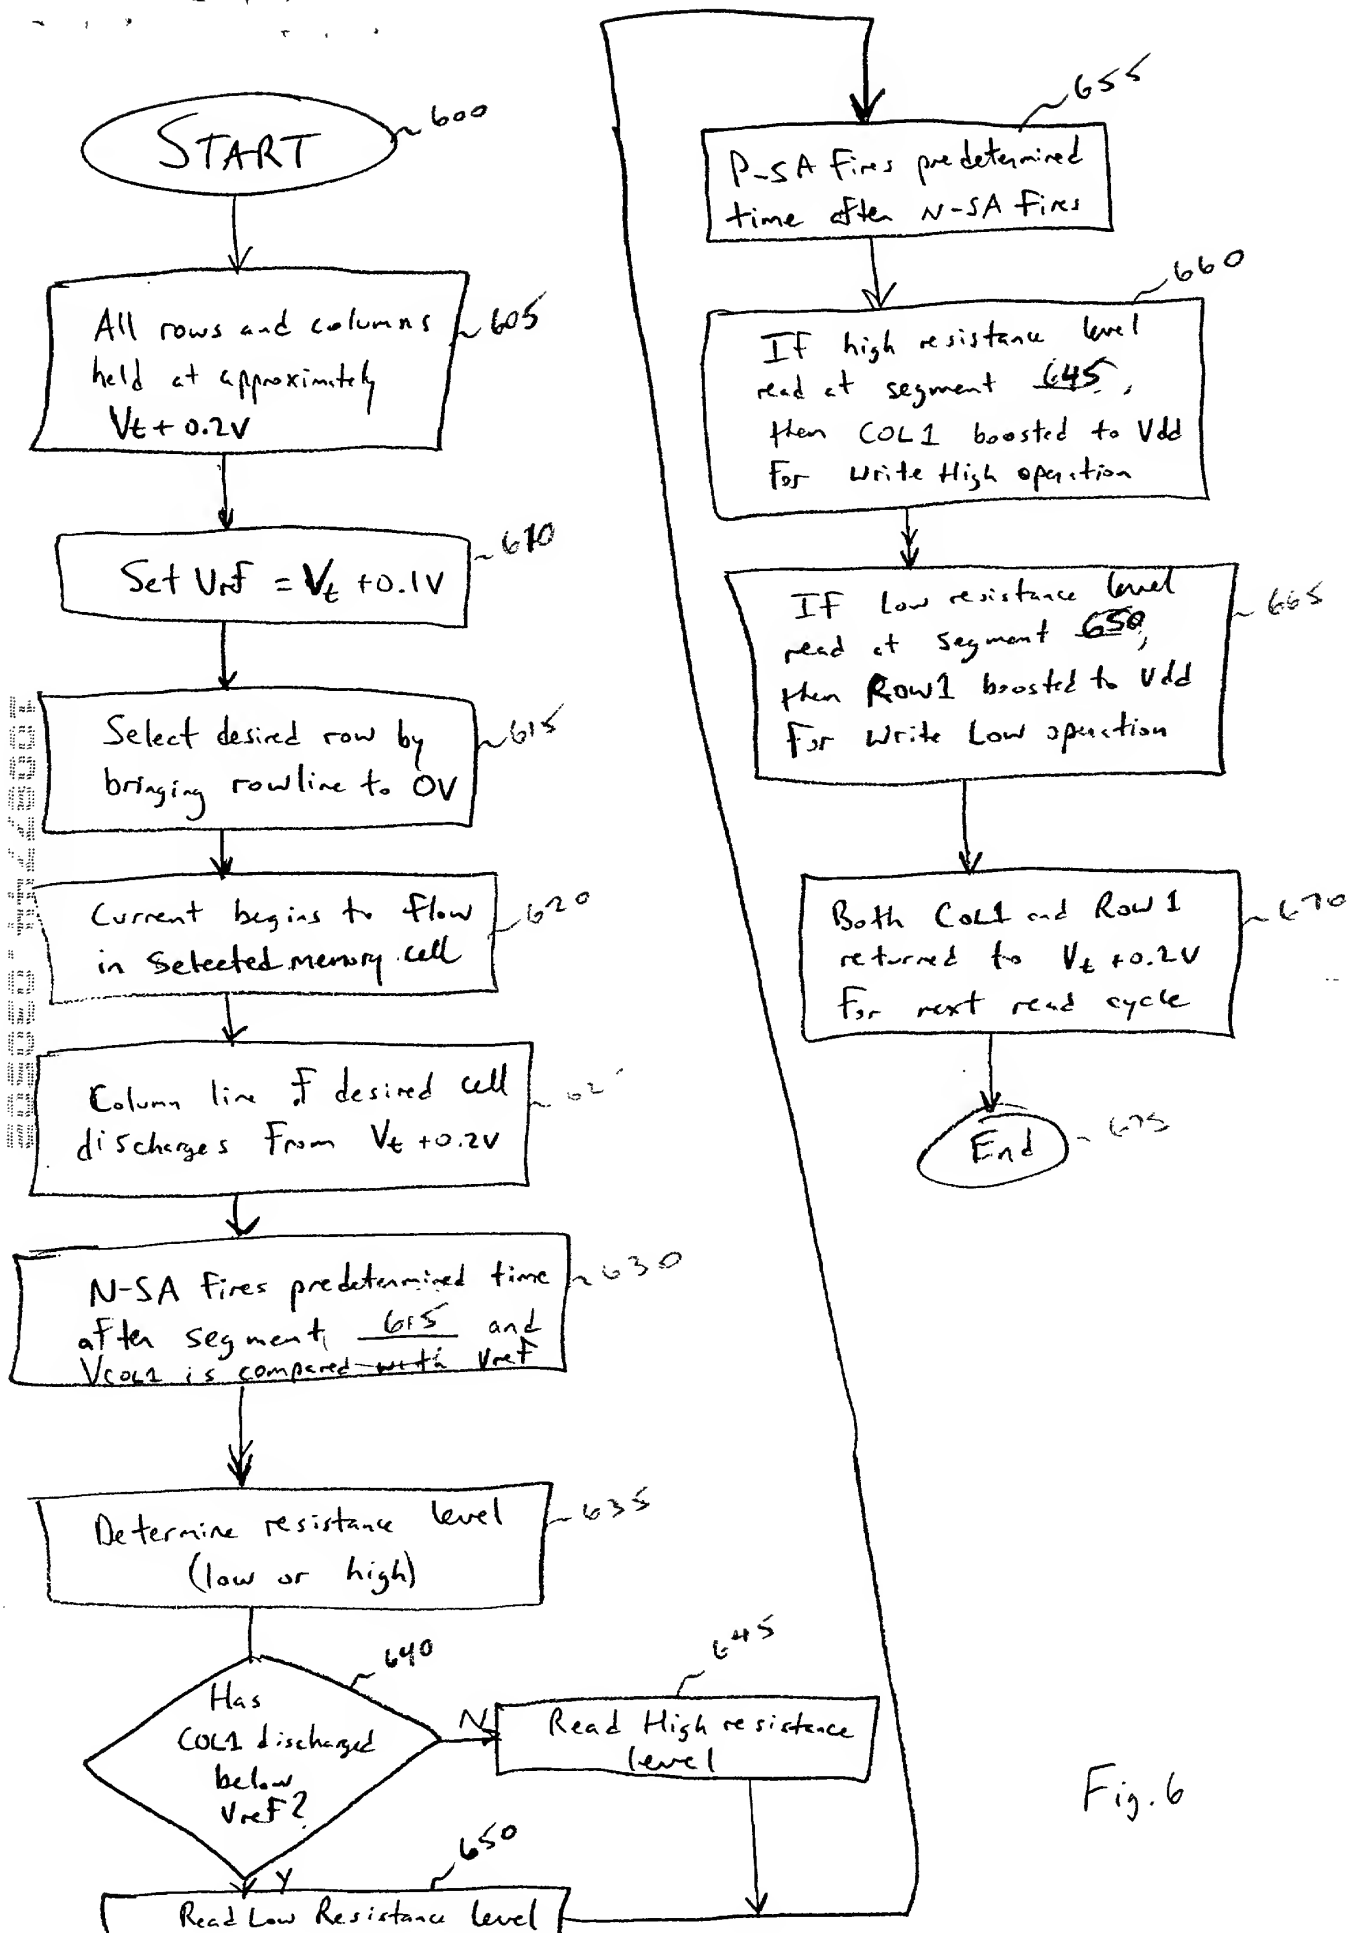 START
600
All rows and columns
held at approximately
Vt + 0.2V
605
Set Vref = Vt + 0.1V
610
Select desired row by
bringing rowline to 0V
615
Current begins to flow
in selected memory cell
620
Column line of desired cell
discharges from Vt + 0.2V
62
N-SA fires predetermined time
after segment 615 and
VCOL1 is compared with Vref
630
Determine resistance level
(low or high)
635
640
Has
COL1 discharged
below
Vref?
N
Y
645
Read High resistance
level
650
Read Low Resistance level
655
P-SA fires predetermined
time after N-SA fires
660
If high resistance level
read at segment 645,
then COL1 boosted to Vdd
for Write High operation
If Low resistance level
read at segment 650,
then Row1 boosted to Vdd
for Write Low operation
665
Both COL1 and Row 1
returned to Vt + 0.2V
for next read cycle
670
End
675
Fig. 6